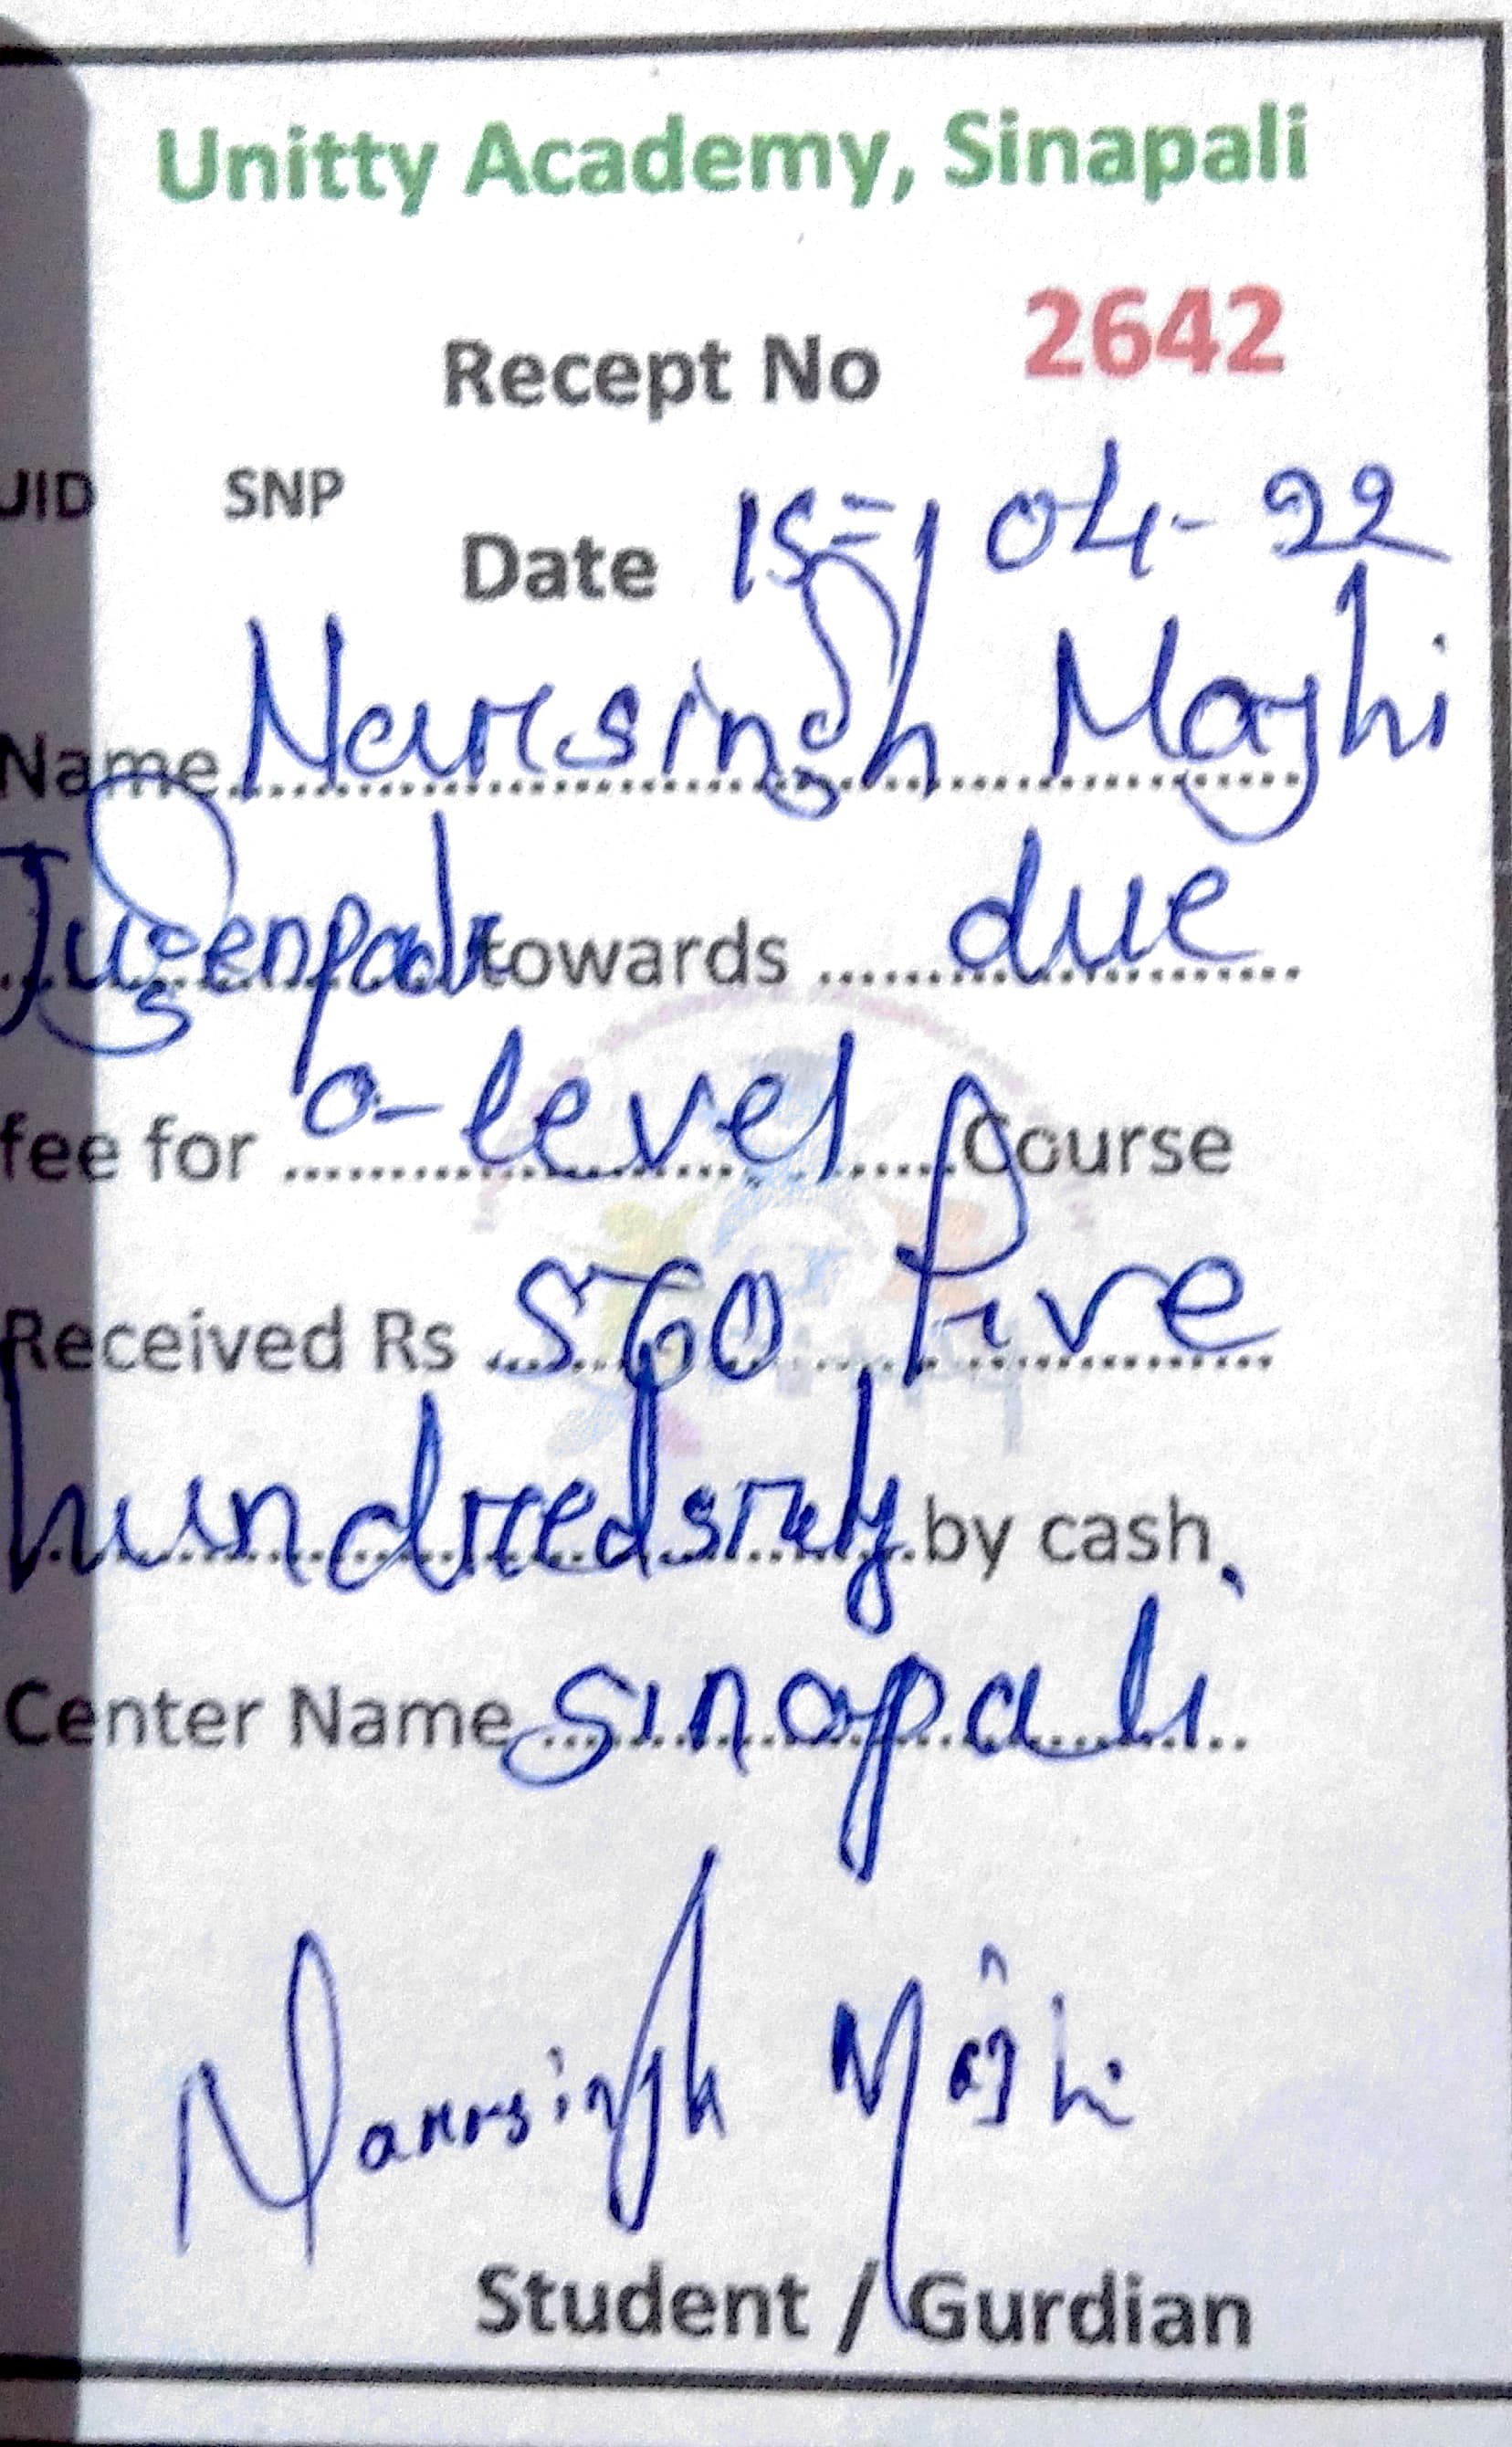 Unitty Academy, Sinapali
Recept No 2642
UID SNP
Date 15-04-22
Name Narsingh Majhi
towards due
fee for o-level Course
Received Rs 560 Five
hundred sixty by cash.
Center Name Sinapali
Narsingh Majhi
Student / Gurdian